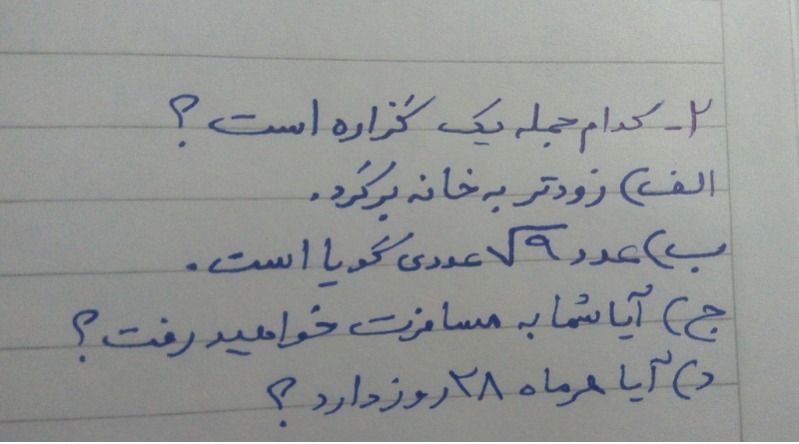 ۲- کدام جمله یک گزاره است؟
الف) زودتر به خانه برگرد.
ب) عدد √۹ عددی گویا است.
ج) آیا شما به مسافرت خواهید رفت؟
د) آیا هر ماه ۲۸ روز دارد؟